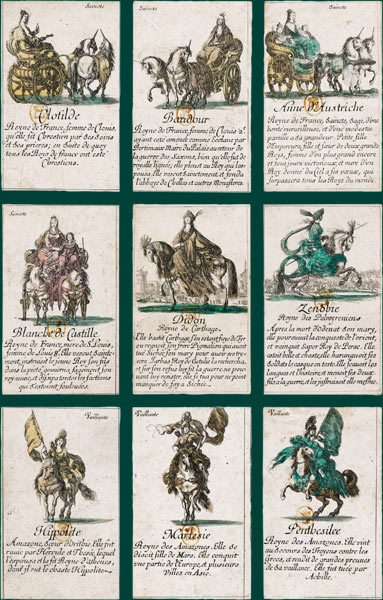 Saincte
Clotilde
Reyne de France, femme de Clouis
qu'elle fit Chrestien par Ses Soins
et Ses prieres; en Suite de quoy
tous les Roys de france ont esté
Chrestiens.
Saincte
Bandour
Reyne de France, femme de Clouis 2.
ayant esté amenée comme Esclaue par
du Palais au retour de
la guerre des Saxons, bien qu'elle fut de
royalle lignée; elle pleut au Roy qui les-
pousa. Elle vescut Sainctement, et fonda
l'abbaye de Chelles et autres Monasteres.
Saincte
Anne d'Austriche
Reyne de France, Saincte, Sage, d'vne
bonté merveilleuse, et d'vne modestie
pareille a Sa grandeur. Petite fille
d'Empereurs, fille et sœur de deux grands
Roys, femme d'vn plus grand encore
et tousiours victorieux; et mere d'vn
Roy donné du Ciel a Ses vœux, qui
surpassera tous les Roys du monde.
Saincte
Blanche de Castille.
Reyne de France, mere de S. Louis,
femme de Louis 8. Elle vescut Sainte-
ment, instruisit le ieune Roy Son fils
dans la pieté, gouuerna Sagement Son
royaume, et dissipa toutes les factions
qui S'estoient Souleuées.
Didon
Reyne de Carthage.
Elle bastit Carthage S'en estant fuye de Tyr
en regnoit Son frere Pigmalion qui auoit
tué Sichée Son mary pour auoir Ses tre-
sors. Iarbas Roy de Getulie la rechercha,
et Sur Son refus luy fit la guerre ne pou-
uant luy resister, elle Se tua pour ne point
manquer de foy a Sichée.
Zenobie
Reyne des Palmyreniens
Apres la mort d'Odenat Son mary,
elle poursuiuit la conqueste de l'orient,
et vainquit Sapor Roy de Perse. Elle
estoit belle et chaste, elle haranguoit Ses
Soldats le casque en teste. Elle Scauoit les
langues et l'histoire et menoit Ses deux
fils a la guerre, et les instruisoit elle mesme.
Vaillante
Hypolite
Amazone, Sœur d'Orithie. Elle fut
rauie par Hercule et Thesée, lequel
l'espousa et la fit Reyne d'athenes,
dont il eut le chaste Hypolite.
Vaillante
Martesie
Reyne des Amazones. Elle Se
disoit fille de Mars. Elle conquit
vne partie de l'Europe, et plusieurs
Villes en Asie.
Vaillante
Penthesilee
Reyne des Amazones. Elle vint
au Secours des Troyens contre les
Grecs, et rendit de grandes preuues
de Sa vaillance. Elle fut tuée par
Achille.